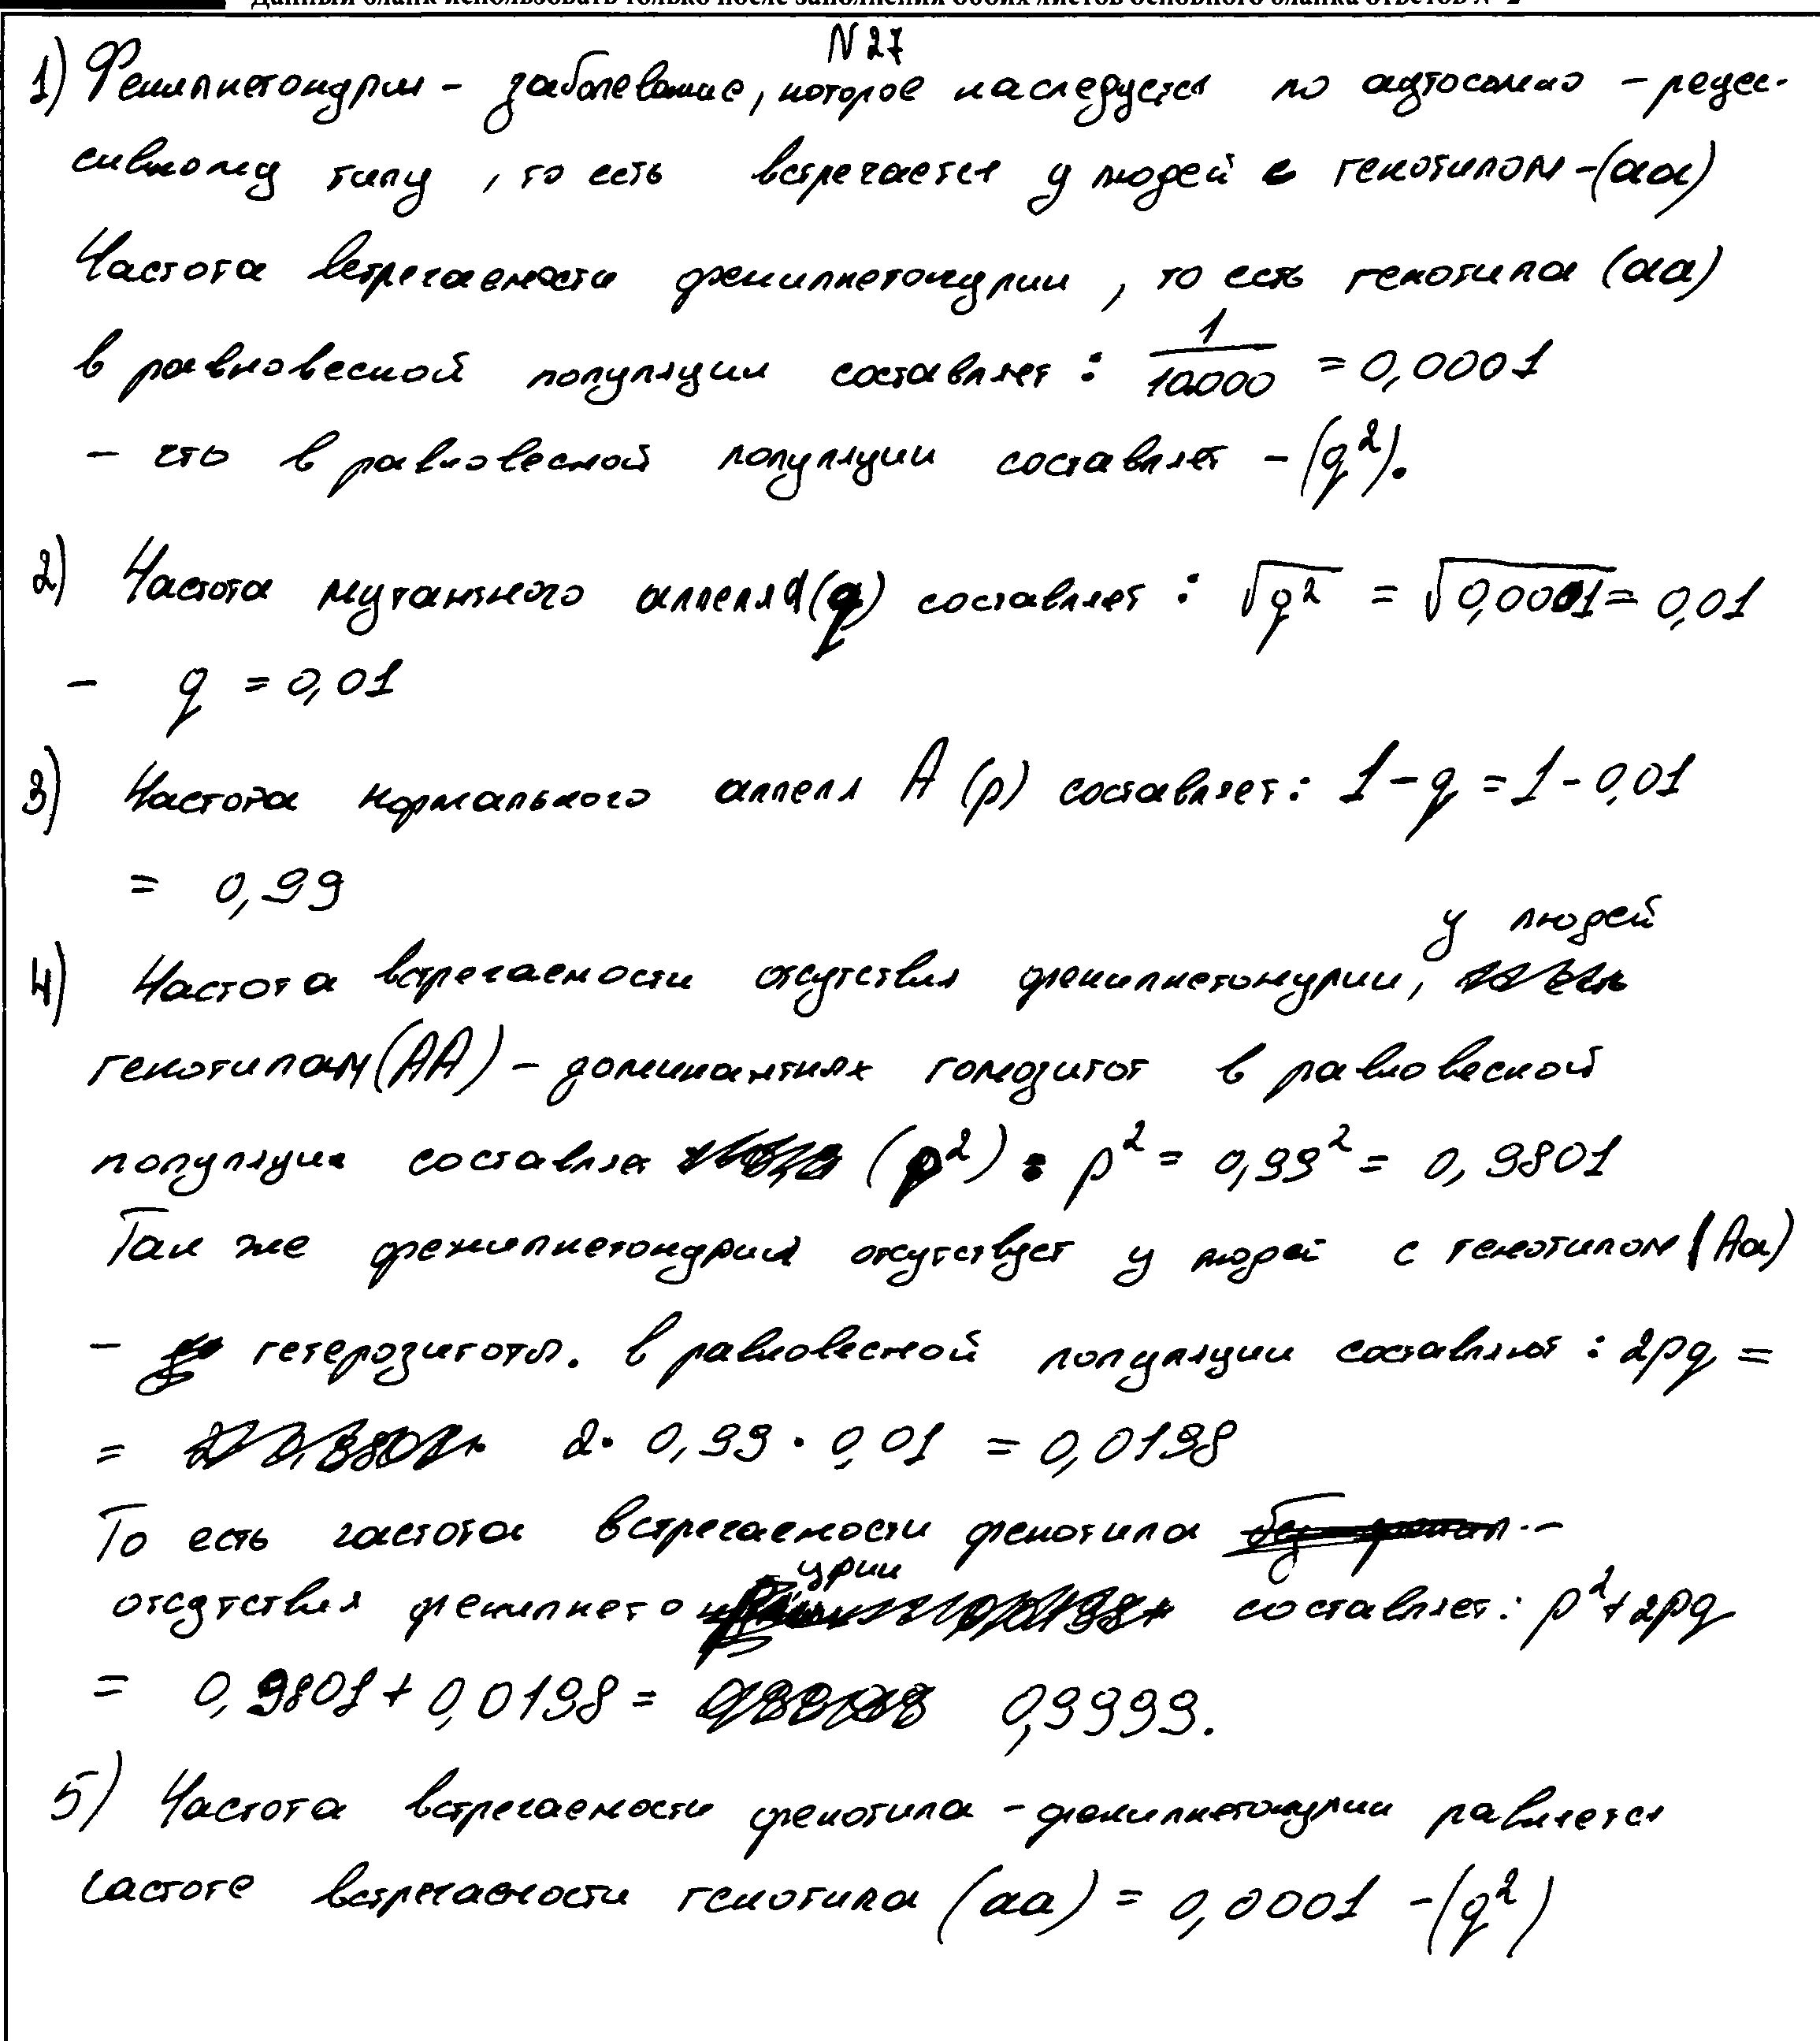 Данный бланк использовать только после заполнения обоих листов основного бланка ответов № 2
N 27
1) Фенилкетонурия - заболевание, которое наследуется по аутосомно - рецес-
сивному типу, то есть встречается у людей с генотипом - (аа)
Частота встречаемости фенилкетонурии, то есть генотипа (аа)
в равновесной популяции составляет : 1/10.000 = 0,0001
- что в равновесной популяции составляет - (q²).
2) Частота мутантного аллеля (q) составляет : √q² = √0,0001 = 0,01
- q = 0,01
3) Частота нормального аллеля А (p) составляет : 1 - q = 1 - 0,01
= 0,99
у людей
4) Частота встречаемости отсутствия фенилкетонурии,
генотипам (АА) - доминантных гомозигот в равновесной
популяции составляет (p²) : p² = 0,99² = 0,9801
Так же фенилкетонурия отсутствует у людей с генотипом (Аа)
- гетерозиготы. в равновесной популяции составляют : 2pq =
= 2 · 0,99 · 0,01 = 0,0198
То есть частота встречаемости фенотипа -
отсутствия фенилкетонурии составляет : p² + 2pq
= 0,9801 + 0,0198 = 0,9999.
5) Частота встречаемости фенотипа - фенилкетонурии равняется
частоте встречаемости генотипа (аа) = 0,0001 - (q²)